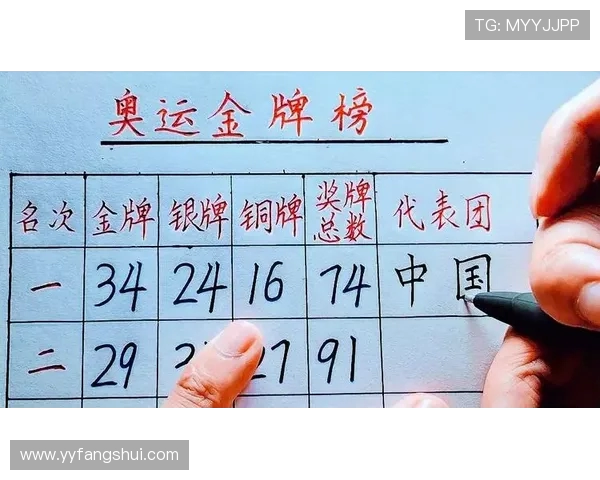 TG: MYYJJPP
奥运金牌榜
名次 金牌 银牌 铜牌 奖牌总数 代表团
一 34 24 16 74 中国
二 29 91
www.yyfangshui.com